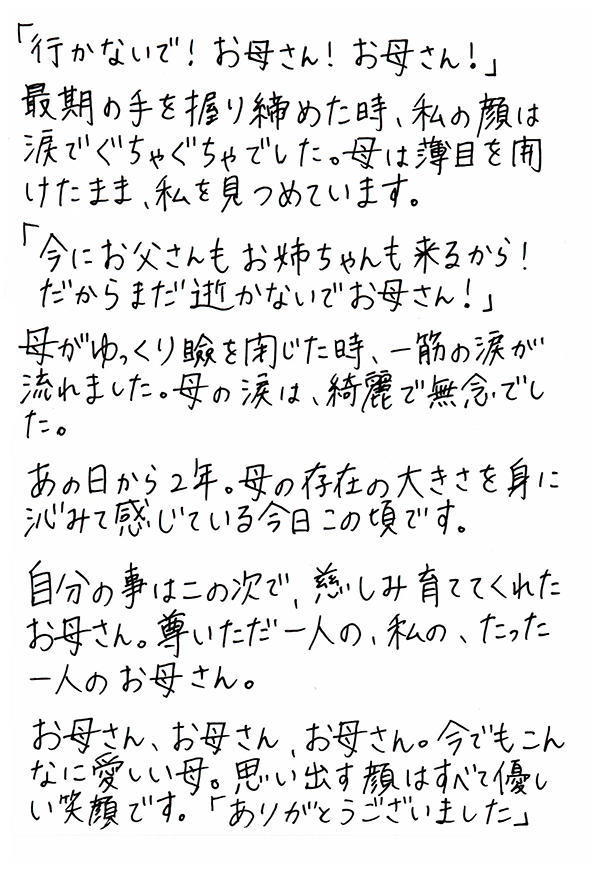 「行かないで！お母さん！お母さん！」
最期の手を握り締めた時、私の顔は
涙でぐちゃぐちゃでした。母は薄目を開
けたまま、私を見つめています。
「今にお父さんもお姉ちゃんも来るから！
だからまだ逝かないでお母さん！」
母がゆっくり瞼を閉じた時、一筋の涙が
流れました。母の涙は、綺麗で無念でし
た。
あの日から2年。母の存在の大きさを身に
沁みて感じている今日この頃です。
自分の事は二の次で、慈しみ育ててくれた
お母さん。尊いただ一人の、私の、たった
一人のお母さん。
お母さん、お母さん、お母さん。今でもこん
なに愛しい母。思い出す顔はすべて優し
い笑顔です。「ありがとうございました」